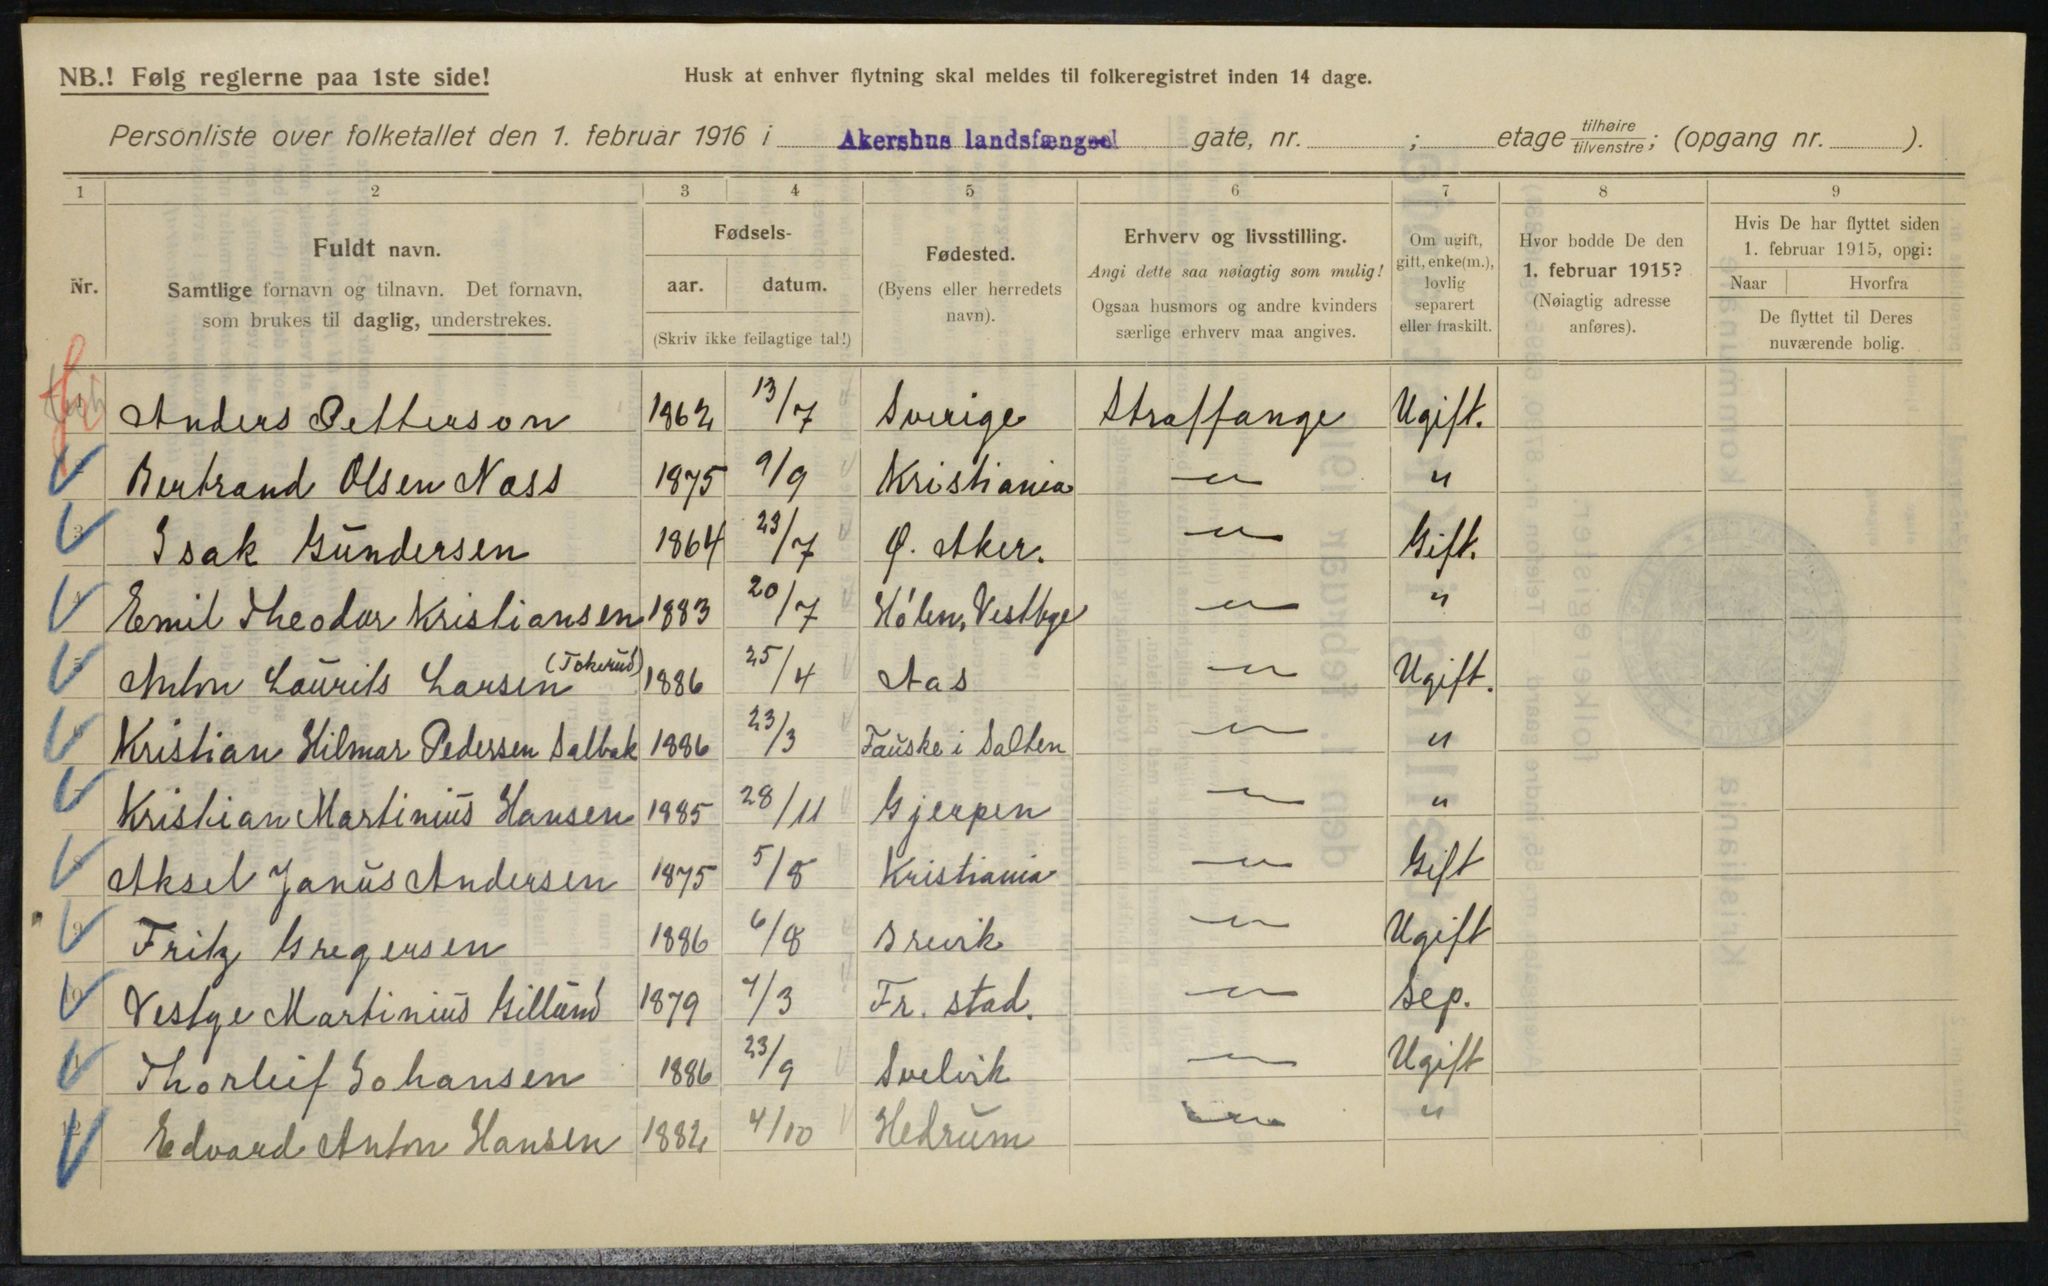 NB.! Følg reglerne paa 1ste side!
Husk at enhver flytning skal meldes til folkeregistret inden 14 dage.
Personliste over folketallet den 1. februar 1916 i Akershus landsfængsel gate, nr. ; etage tilhøire/tilvenstre; (opgang nr. ).
1 2 3 4 5 6 7 8 9
Nr.
Fuldt navn.
Samtlige fornavn og tilnavn. Det fornavn,
som brukes til daglig, understrekes.
Fødsels-
aar. datum.
(Skriv ikke feilagtige tal!)
Fødested.
(Byens eller herredets
navn).
Erhverv og livsstilling.
Angi dette saa nøiagtig som mulig!
Ogsaa husmors og andre kvinders
særlige erhverv maa angives.
Om ugift,
gift, enke(m.),
lovlig
separert
eller fraskilt.
Hvor bodde De den
1. februar 1915?
(Nøiagtig adresse
anføres).
Hvis De har flyttet siden
1. februar 1915, opgi:
Naar Hvorfra
De flyttet til Deres
nuværende bolig.
Anders Petterson 1862 13/7 Sverige Straffange Ugift.
Bertrand Olsen Nass 1875 9/9 Kristiania — " — "
3 Isak Gundersen 1864 23/7 Ø. Aker. — " — Gift.
4 Emil Theodor Kristiansen 1883 20/7 Hølen, Vestbye — " — "
5 Anton Laurits Larsen (Tokerud) 1886 25/4 Aas — " — Ugift.
6 Kristian Hilmar Pedersen Salbak 1886 23/3 Fauske i Salten — " — "
7 Kristian Martinius Hansen 1885 28/11 Gjerpen — " — "
8 Aksel Janus Andersen 1875 5/8 Kristiania — " — Gift
9 Fritz Gregersen 1886 6/8 Brevik — " — Ugift
10 Vestye Martinius Gillund 1879 7/3 Fr. stad. — " — Sep.
11 Thorleif Johansen 1886 23/9 Svelvik — " — Ugift
12 Edvard Anton Hansen 1882 4/10 Hedrum — " — "